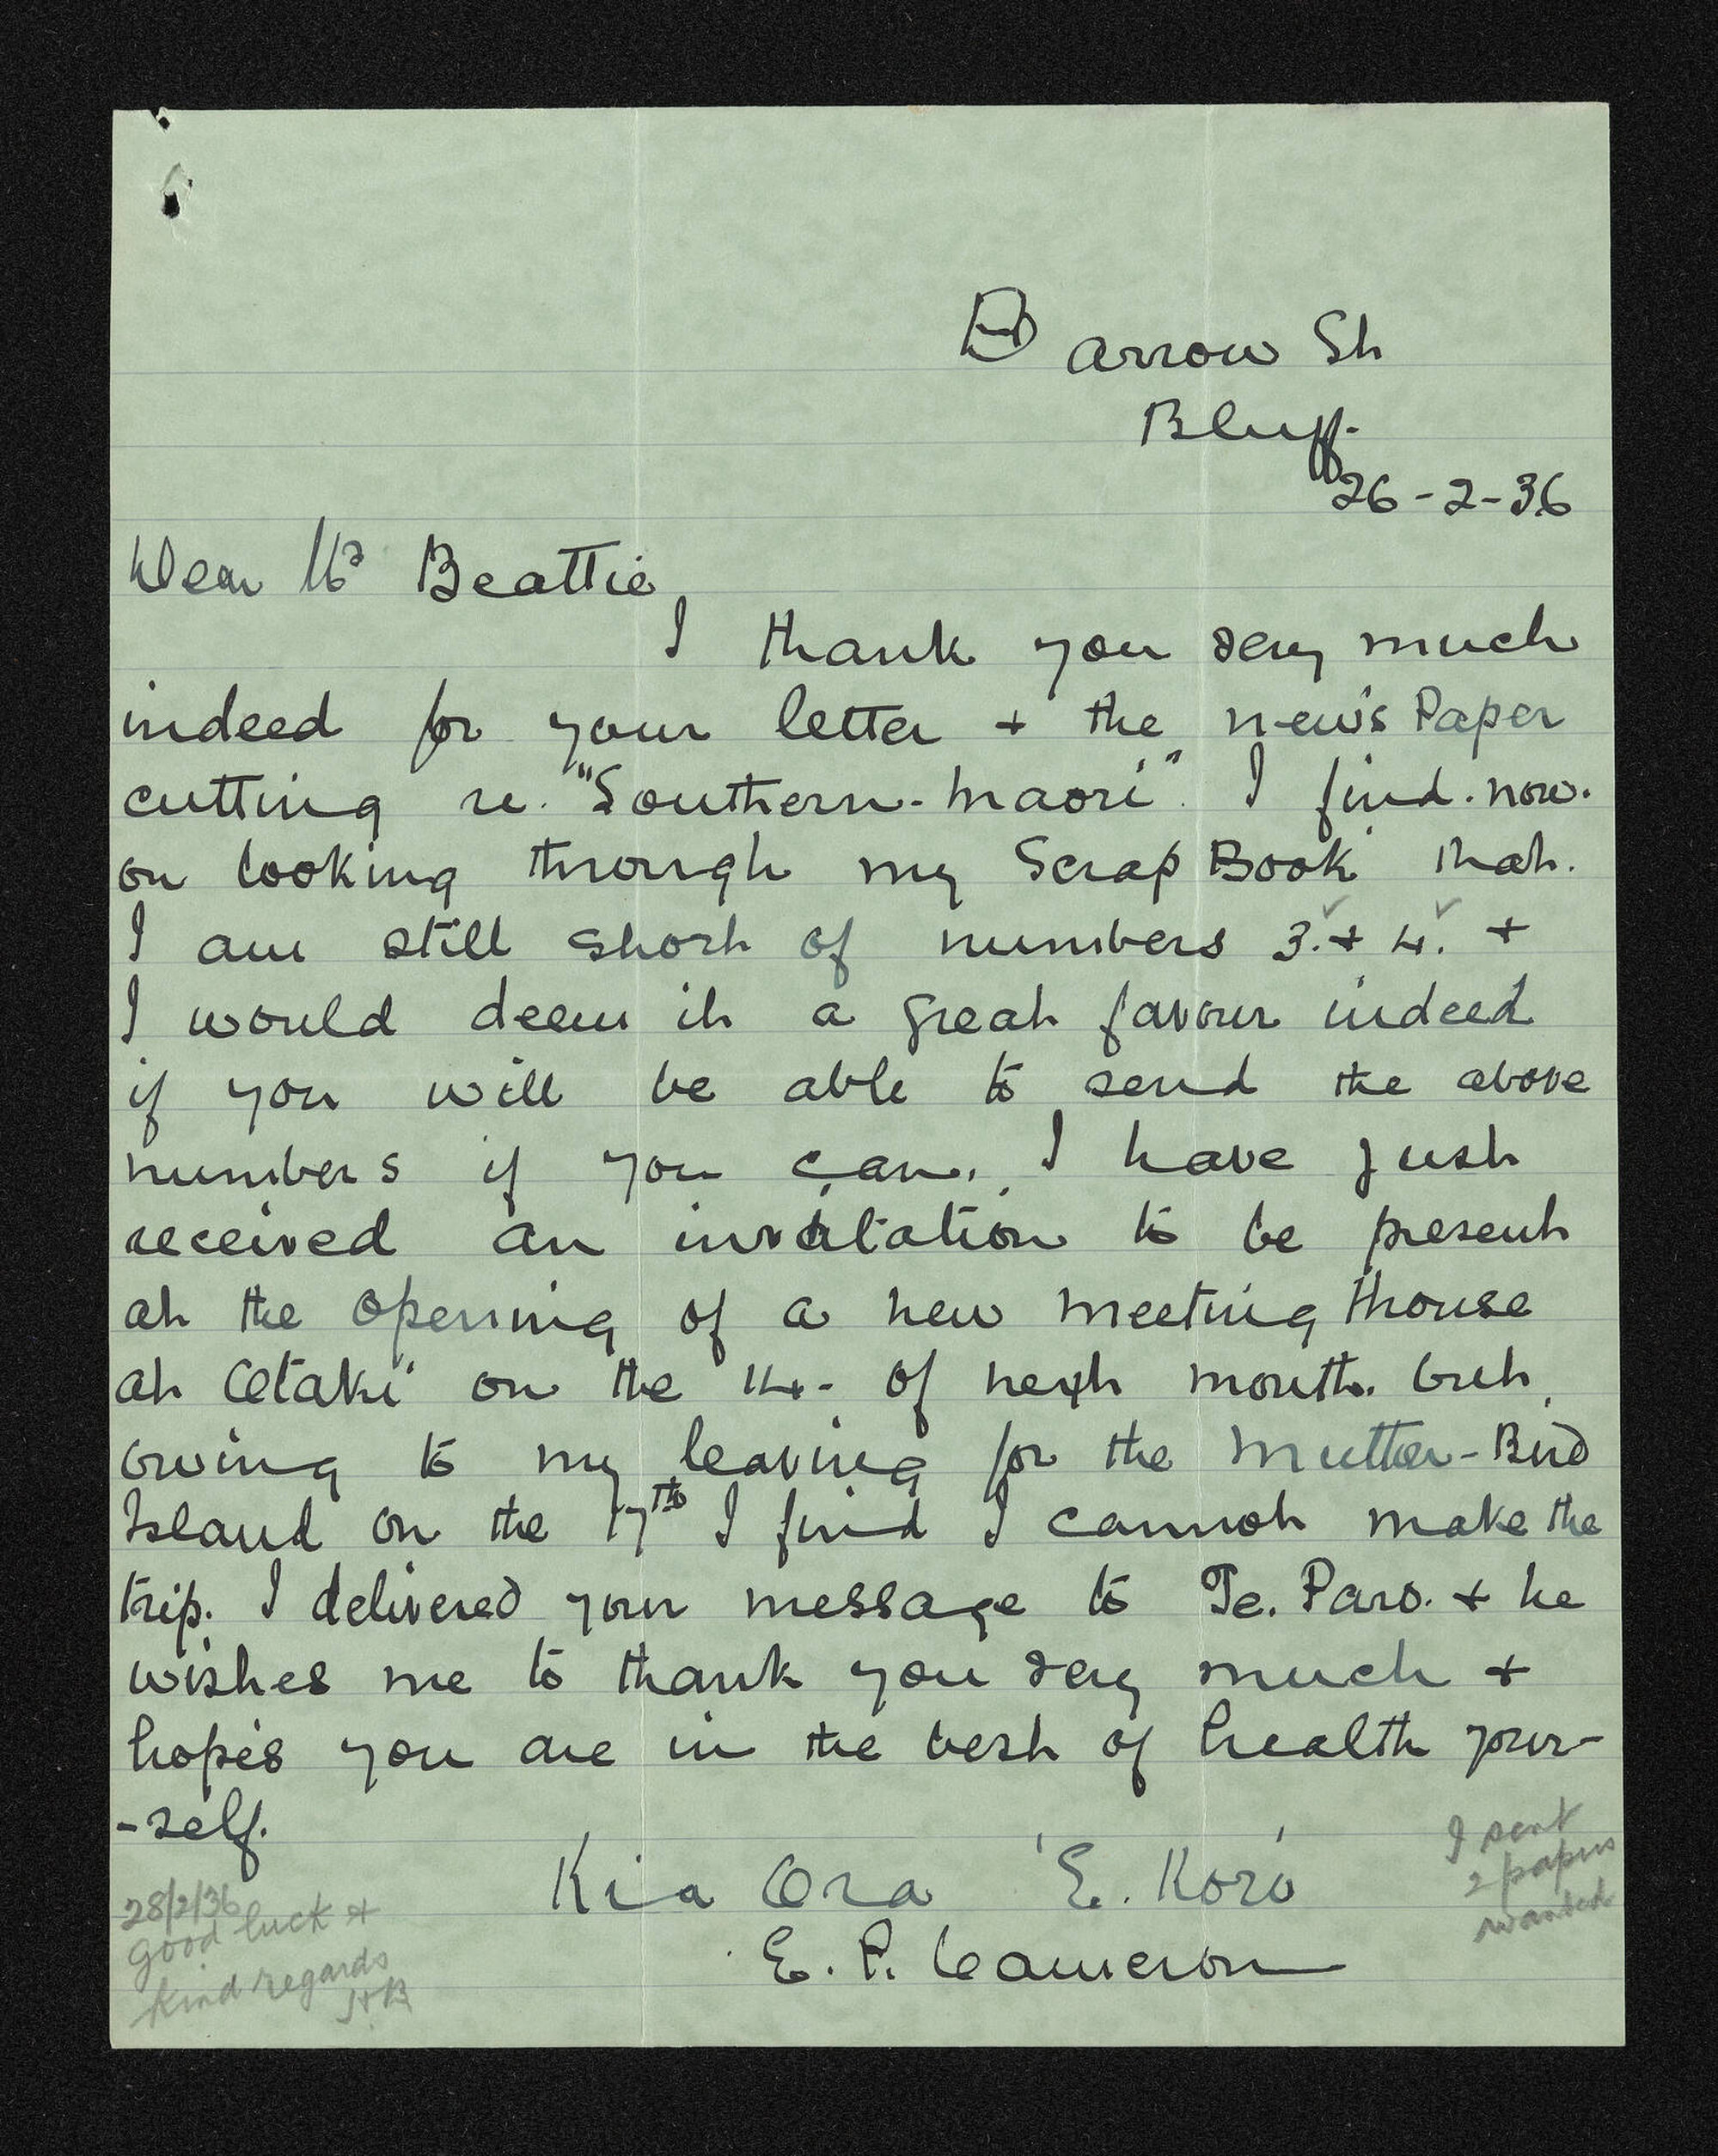 Barrow St
Bluff.
26-2-36
Dear Mr Beattie,
I thank you very much
indeed for your letter + the news Paper
cutting re. "Southern-Maori". I find. now.
on looking through my Scrap Book that.
I am still short of numbers 3. + 4. +
I would deem it a great favour indeed
if you will be able to send the above
numbers if you can. I have just
received an invitation to be present
at the opening of a new meeting House
at Otaki on the 14- of next month. but,
owing to my leaving for the Mutton-Bird
Island on the 17th I find I cannot make the
trip. I delivered your message to Te. Paro. + he
wishes me to thank you very much +
hopes you are in the best of health your-
-self.
Kia Ora 'E. Koro'
E. P. Cameron
I sent
2 papers
wanted
28/2/36
Good luck &
kind regards
JHB